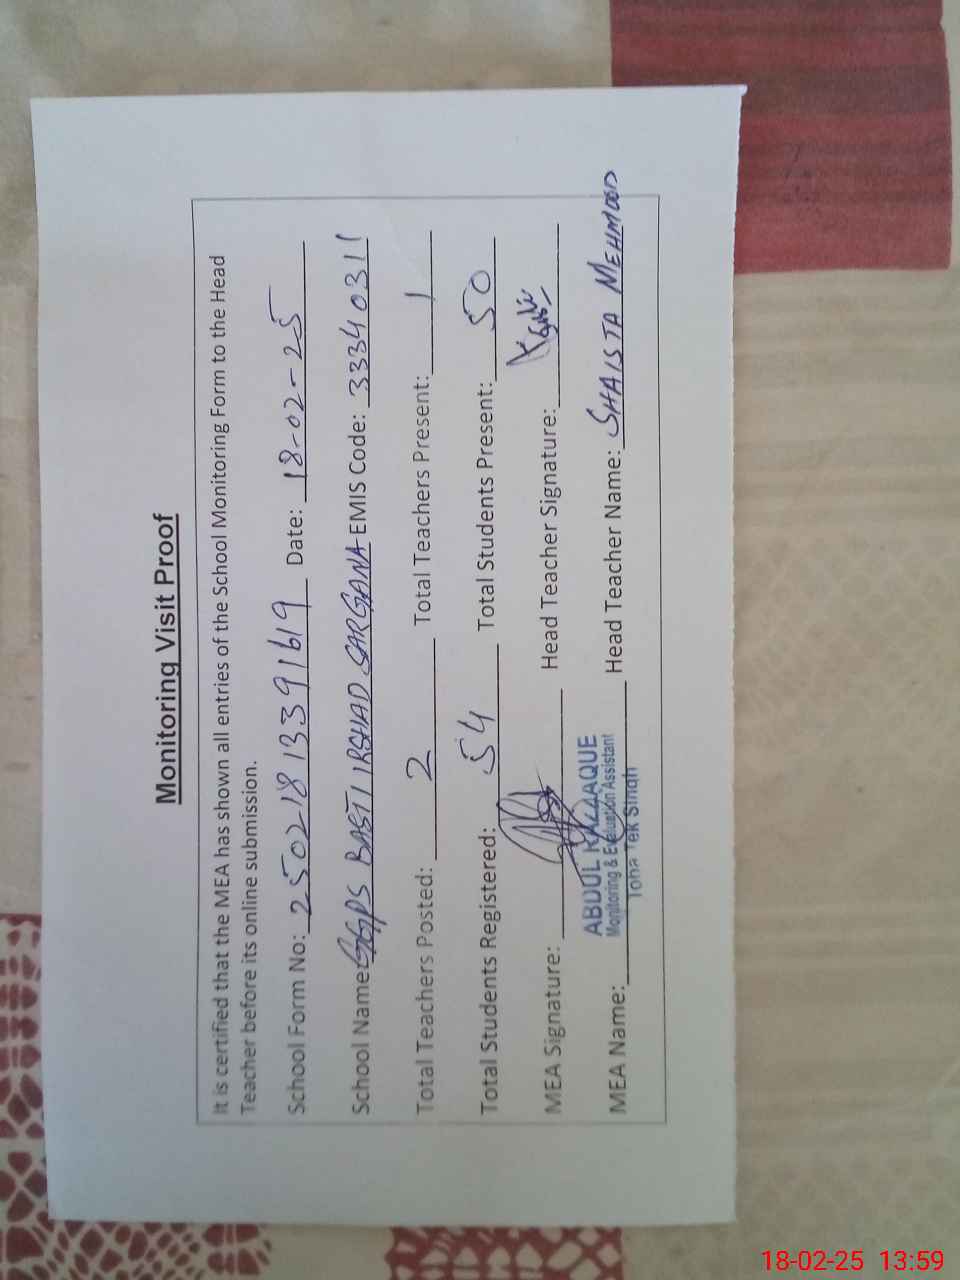 Monitoring Visit Proof
It is certified that the MEA has shown all entries of the School Monitoring Form to the Head
Teacher before its online submission.
School Form No: 25021813391619 Date: 18-02-25
School Name: GGPS BASTI IRSHAD SARGANA EMIS Code: 33340311
Total Teachers Posted: 2 Total Teachers Present: 1
Total Students Registered: 54 Total Students Present: 50
MEA Signature: Head Teacher Signature:
ABDUL RAZZAQUE
Monitoring & Evaluation Assistant
Toba Tek Singh
MEA Name: Head Teacher Name: SHAISTA MEHMOOD
18-02-25 13:59